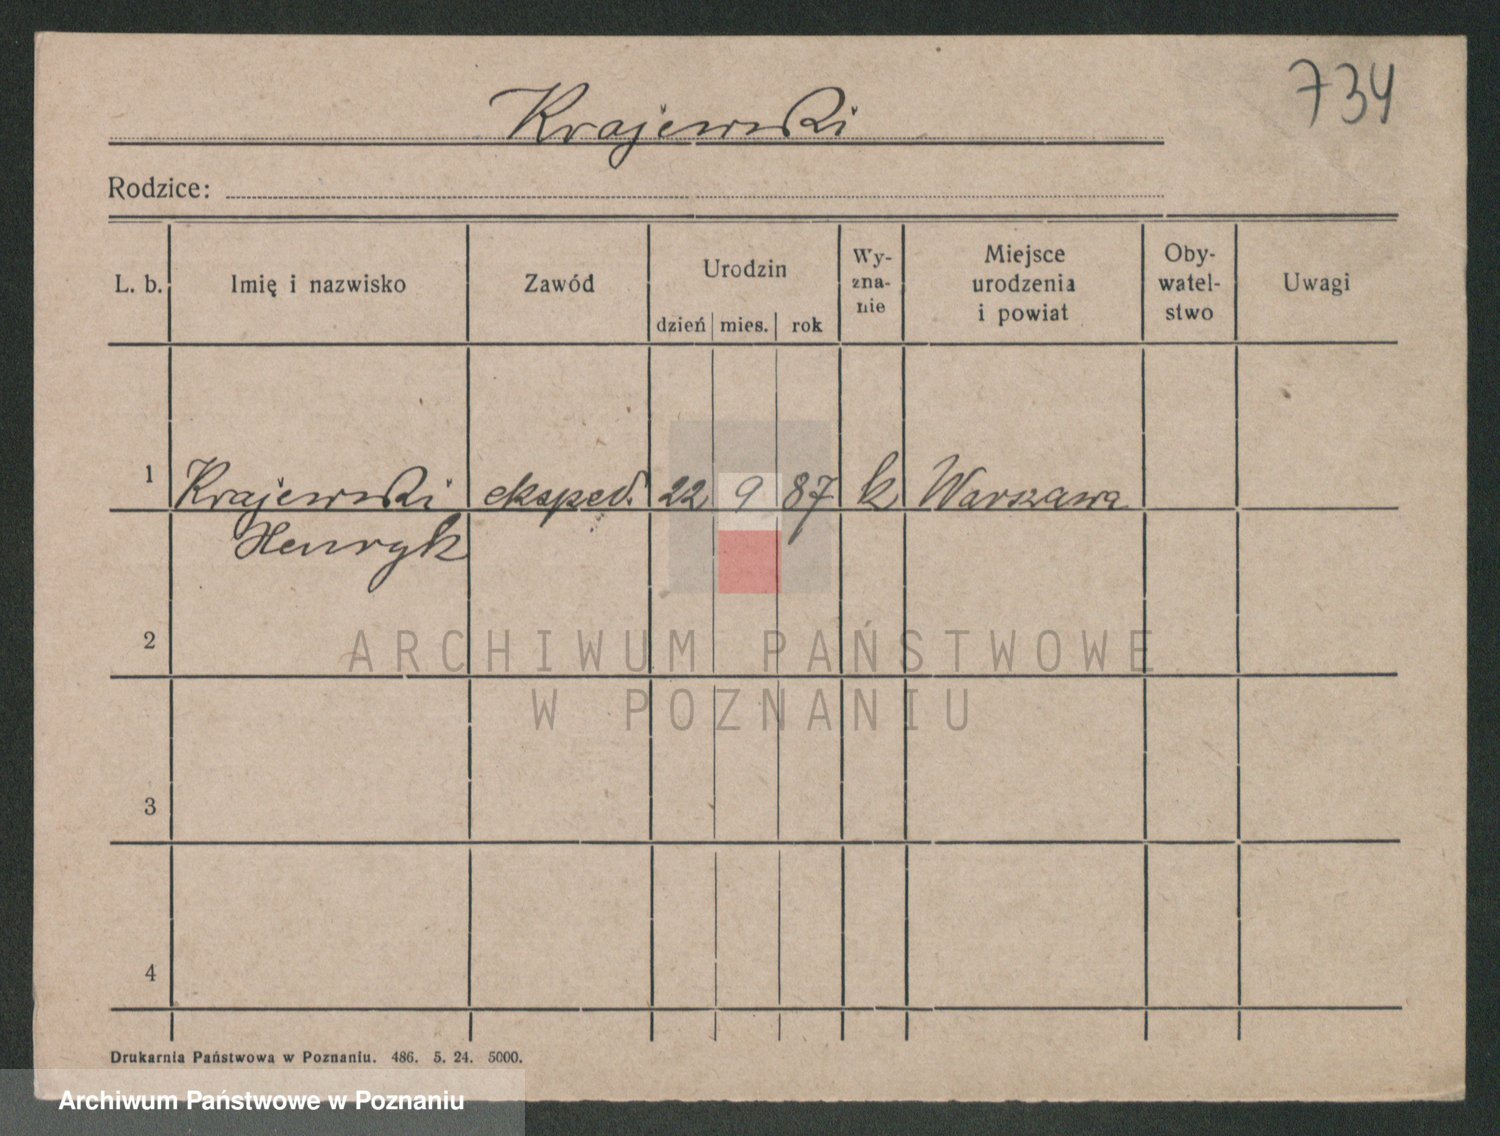 734
Krajewski
Rodzice:
L. b.
Imię i nazwisko
Zawód
Urodzin
dzień mies. rok
Wy-
zna-
nie
Miejsce
urodzenia
i powiat
Oby-
watel-
stwo
Uwagi
1 Krajewski eksped. 22 9 87 k Warszawa
Henryk
2
3
4
ARCHIWUM PAŃSTWOWE
W POZNANIU
Drukarnia Państwowa w Poznaniu. 486. 5. 24. 5000.
Archiwum Państwowe w Poznaniu